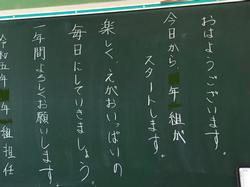 おはようございます。
今日から 年 組が
スタートします。
楽しく、えがおいっぱいの
毎日にしていきましょう。
一年間よろしくお願いします。
令和五年 年 組担任